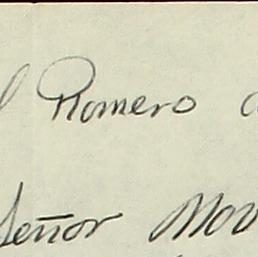 l Romero a
Señor Mov